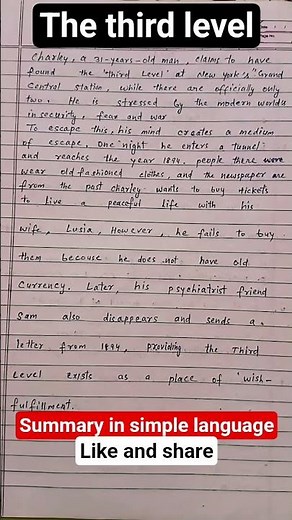 The third level
Charley, a 31-years-old man, claims to have
found the 'third Level' at New York's "Grand
Central Station, while there are officially only
two. He is stressed by the modern world
insecurity, fear and war
To escape this, his mind creates a medium
of escape. One night he enters a tunnel
and reaches the year 1894, people there were
wear old fashioned clothes, and the newspaper are
from the past charley wants to buy tickets
to live a peaceful life with his
wife, Lusia, However, he fails to buy
them becouse he does not have old
Currency. Later, his psychiatrist friend
Sam also disappears and sends a
letter from 1894, providing the Third
Level exists as a place of 'wish-
fulfillment.
Summary in simple language
Like and share